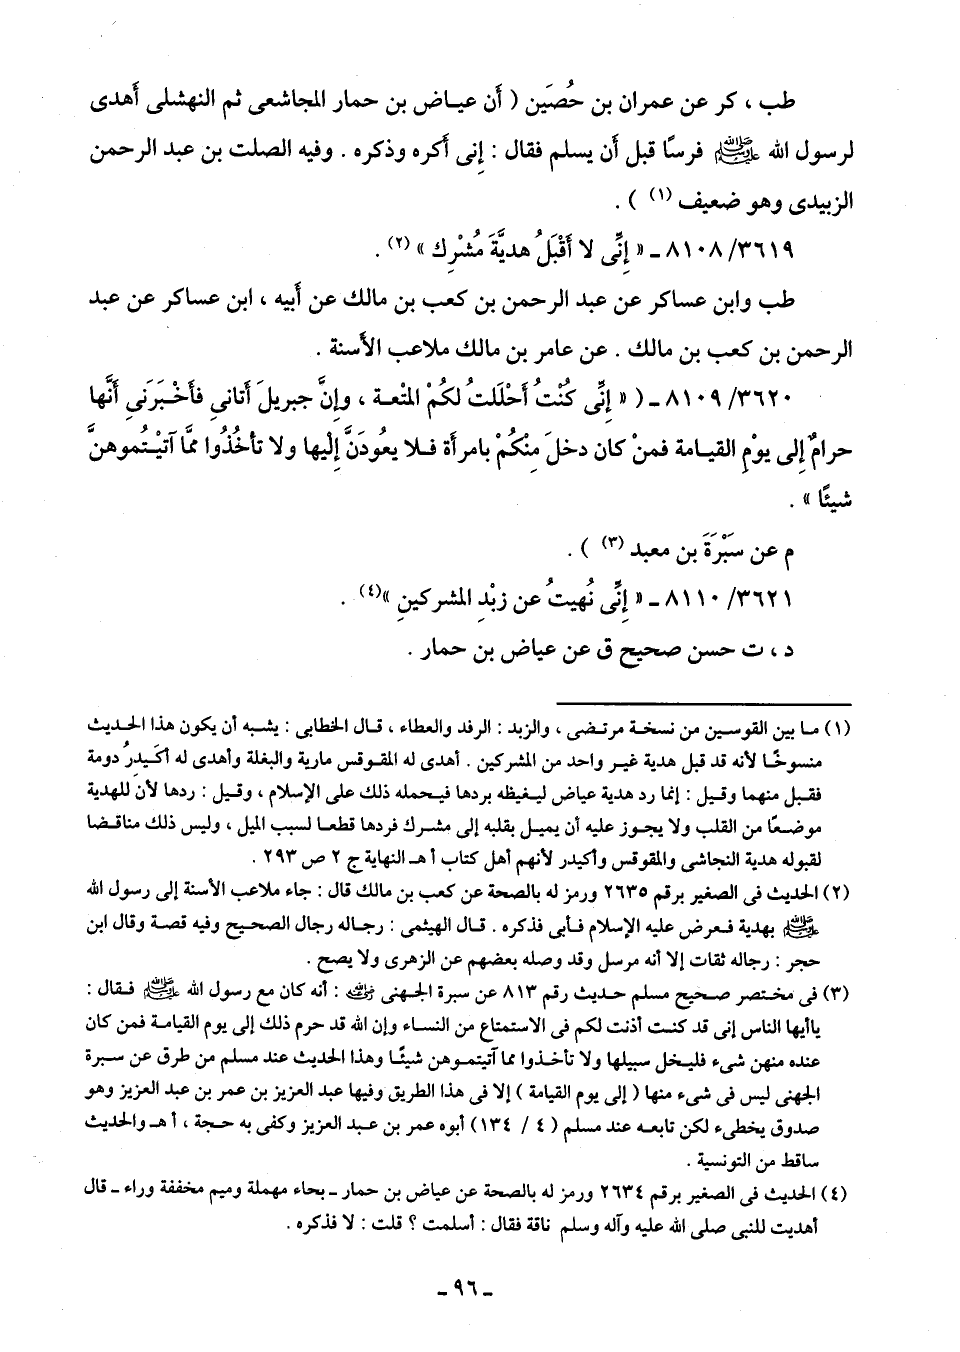 طب ، كر عن عمران بن حُصَين ( أن عياض بن حمار المجاشعى ثم النهشلى أهدى
لرسول الله ﷺ فرسًا قبل أن يسلم فقال : إنى أكره وذكره . وفيه الصلت بن عبد الرحمن
الزبيدى وهو ضعيف (١) ) .
٨١٠٨/٣٦١٩ ـ « إِنِّى لا أَقْبَلُ هديَّةَ مُشْرِك » (٢) .
طب وابن عساكر عن عبد الرحمن بن كعب بن مالك عن أبيه ، ابن عساكر عن عبد
الرحمن بن كعب بن مالك . عن عامر بن مالك ملاعب الأسنة .
٨١٠٩/٣٦٢٠ ـ ( « إِنِّى كُنْتُ أَحْلَلتُ لكُمْ المتْعة ، وإنَّ جبريلَ أتانىِ فأخْبَرَنىِ أنَّها
حرامٌ إلى يوْمِ القيـامة فمنْ كان دخلَ مِنْكُمْ بامرأة فـلا يعُودَنَّ إِلْيها ولا تأخُذُوا ممَّا آتيْـتُموهنَّ
شيئًا » .
م عن سَبْرَةَ بن معبد (٣) ) .
٨١١٠/٣٦٢١ ـ « إِنِّى نُهيتُ عن زبْدِ المشركينِ »(٤) .
د ، ت حسن صحيح ق عن عياض بن حمار .
(١) مـا بين القوسـين من نسخـة مرتـضى ، والزبد : الرفد والعطاء ، قـال الخطابى : يشبـه أن يكون هذا الحديث
منسـوخًـا لأنه قد قبل هدية غـير واحد من المشركين . أهدى له المقـوقس مارية والبغلة وأهدى له أكَيدِرُ دومة
فقبـل منهما وقيل : إنما رد هدية عياض ليـغيظه بردها فيـحمله ذلك على الإسلام ، وقيل : ردها لأن للهدية
موضـعًا من القلب ولا يجـوز عليه أن يميـل بقلبه إلى مشـرك فردها قطعـا لسبب الميل ، وليس ذلك مناقـضا
لقبوله هدية النجاشى والمقوقس وأكيدر لأنهم أهل كتاب أ هـ النهاية ج ٢ ص ٢٩٣ .
(٢) الحديث فى الصغير برقم ٢٦٣٥ ورمز له بالصحة عن كعب بن مالك قال : جاء ملاعب الأسنة إلى رسول الله
ﷺ بهدية فـعرض عليه الإسلام فـأبى فذكره . قـال الهيثمى : رجـاله رجال الصحـيح وفيه قصـة وقال ابن
حجر : رجاله ثقات إلا أنه مرسل وقد وصله بعضهم عن الزهرى ولا يصح .
(٣) فى مخـتصر صحـيح مسلم حـديث رقم ٨١٣ عن سبرة الجـهنى رضي الله عنه : أنه كان مع رسول الله ﷺ فـقال :
ياأيها الناس إنى قد كنـت أذنت لكم فى الاستمتاع من النساء وإن الله قد حرم ذلك إلى يوم القيامـة فمن كان
عنده منهن شىء فليـخل سبيلها ولا تأخـذوا مما آتيتمـوهن شيئًـا وهذا الحديث عند مسلم من طرق عن سبرة
الجهنى ليس فى شىء منها ( إلى يوم القيامة ) إلا فى هذا الطريق وفيها عبد العزيز بن عمر بن عبد العزيز وهو
صدوق يخطىء لكن تابعه عند مسلم ( ٤ / ١٣٤) أبوه عمر بن عـبد العزيز وكفى به حـجة ، أ هـ والحديث
ساقط من التونسية .
(٤) الحديث فى الصغير برقم ٢٦٣٤ ورمز له بالصحة عن عياض بن حمار ـ بحاء مهملة وميم مخففة وراء ـ قال
أهديت للنبى صلى الله عليه وآله وسلم ناقة فقال : أسلمت ؟ قلت : لا فذكره .
ـ ٩٦ ـ